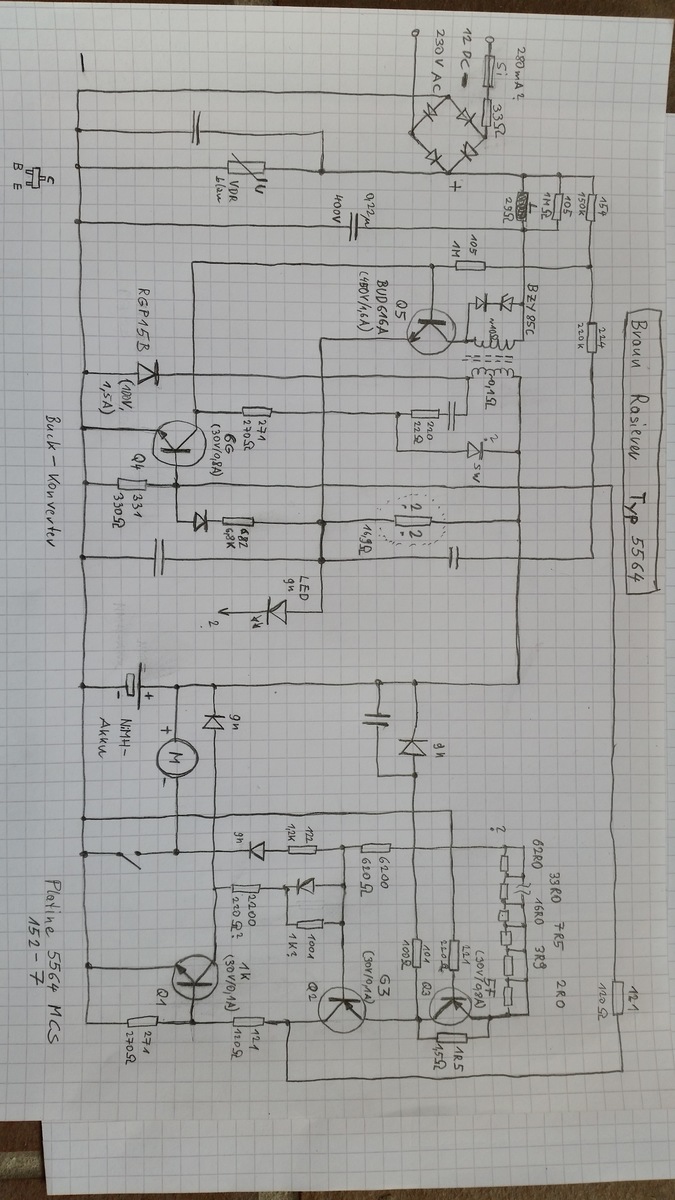 Braun Rasierer Typ 5564
280mA?
Si
33Ω
12 DC
230V AC
+
−
154
150K
105
1MΩ
L
29Ω
224
220K
105
1M
BZY85C
0,22µ
400V
VDR
U
C
B
E
Q5
BUD616A
(450V/1,6A)
0,1Ω
RGP15B
(100V,
1,5A)
6G
(30V/0,8A)
Q4
271
270Ω
220
22Ω
?
SW
331
330Ω
682
6,8K
? ?
16,9Ω
LED
gn
?
Buck-Konverter
+
-
NiMH-
Akku
M
+
-
gn
gn
gn
122
1,2K
6200
620Ω
2200
220Ω?
1001
1K?
?
62R0
33R0
16R0
7R5
3R9
2R0
101
100Ω
221
220Ω
5F
(30V/0,8A)
Q3
1R5
1,5Ω
G3
(30V/0,1A)
Q2
1K
(30V/0,1A)
Q1
271
270Ω
121
120Ω
121
120Ω
Platine 5564 MCS
152-7